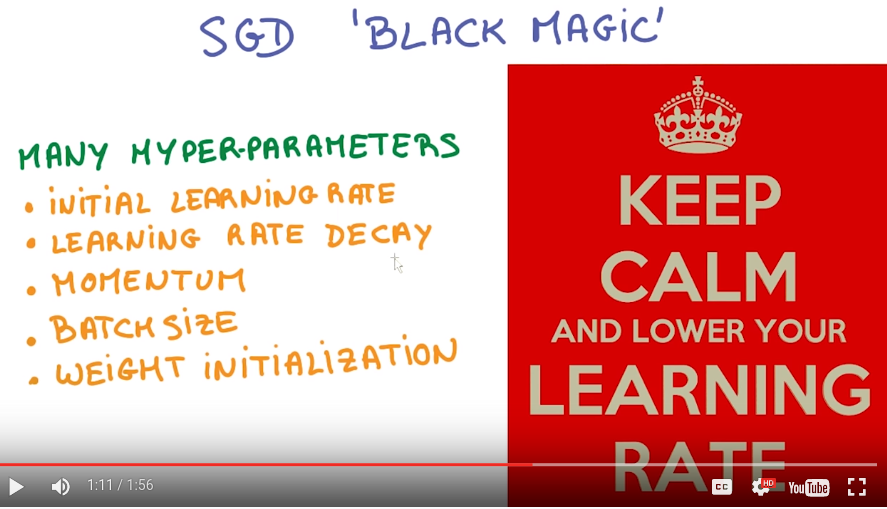 SGD 'BLACK MAGIC'
MANY HYPER-PARAMETERS
• INITIAL LEARNING RATE
• LEARNING RATE DECAY
• MOMENTUM
• BATCH SIZE
• WEIGHT INITIALIZATION
KEEP
CALM
AND LOWER YOUR
LEARNING
RATE
1:11 / 1:56
CC
HD
YouTube